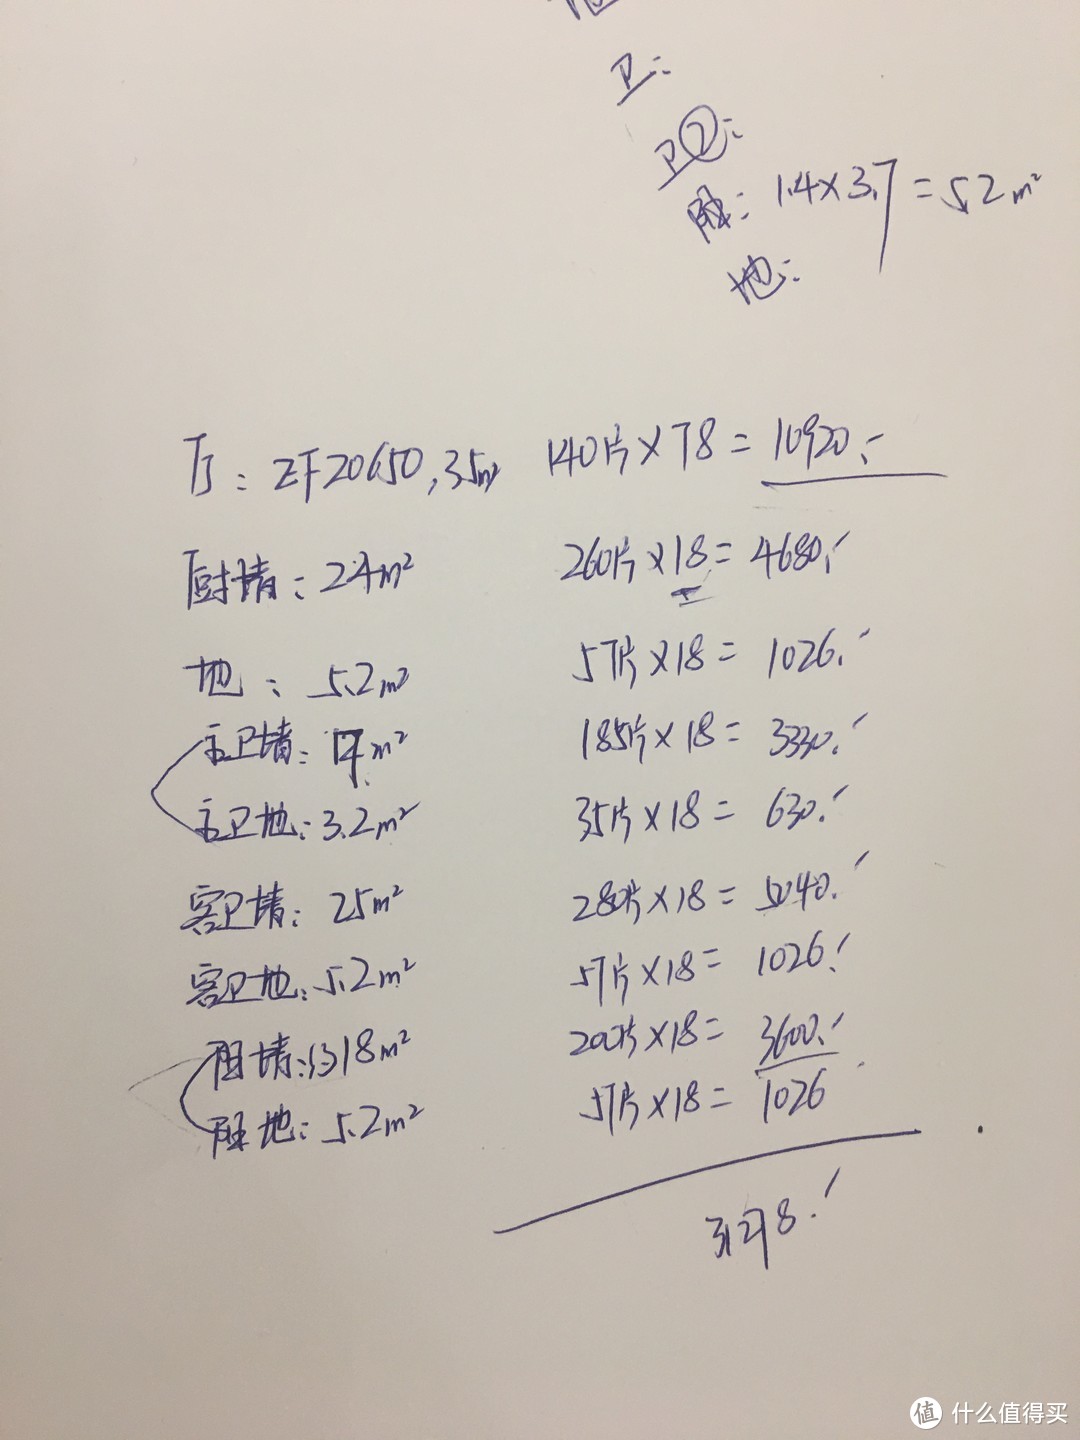 卫:
卫②:
阳: 1.4×3.7=5.2m²
地:
厅: ZF20650,35m² 140片×78=10920.-
厨墙: 24m² 260片×18=4680.-
地: 5.2m² 57片×18=1026.-
主卫墙: 17m² 185片×18=3330.-
主卫地: 3.2m² 35片×18=630.-
客卫墙: 25m² 280片×18=5040.-
客卫地: 5.2m² 57片×18=1026.-
阳墙: 18m² 200片×18=3600.-
阳地: 5.2m² 57片×18=1026
31278.-
值 什么值得买